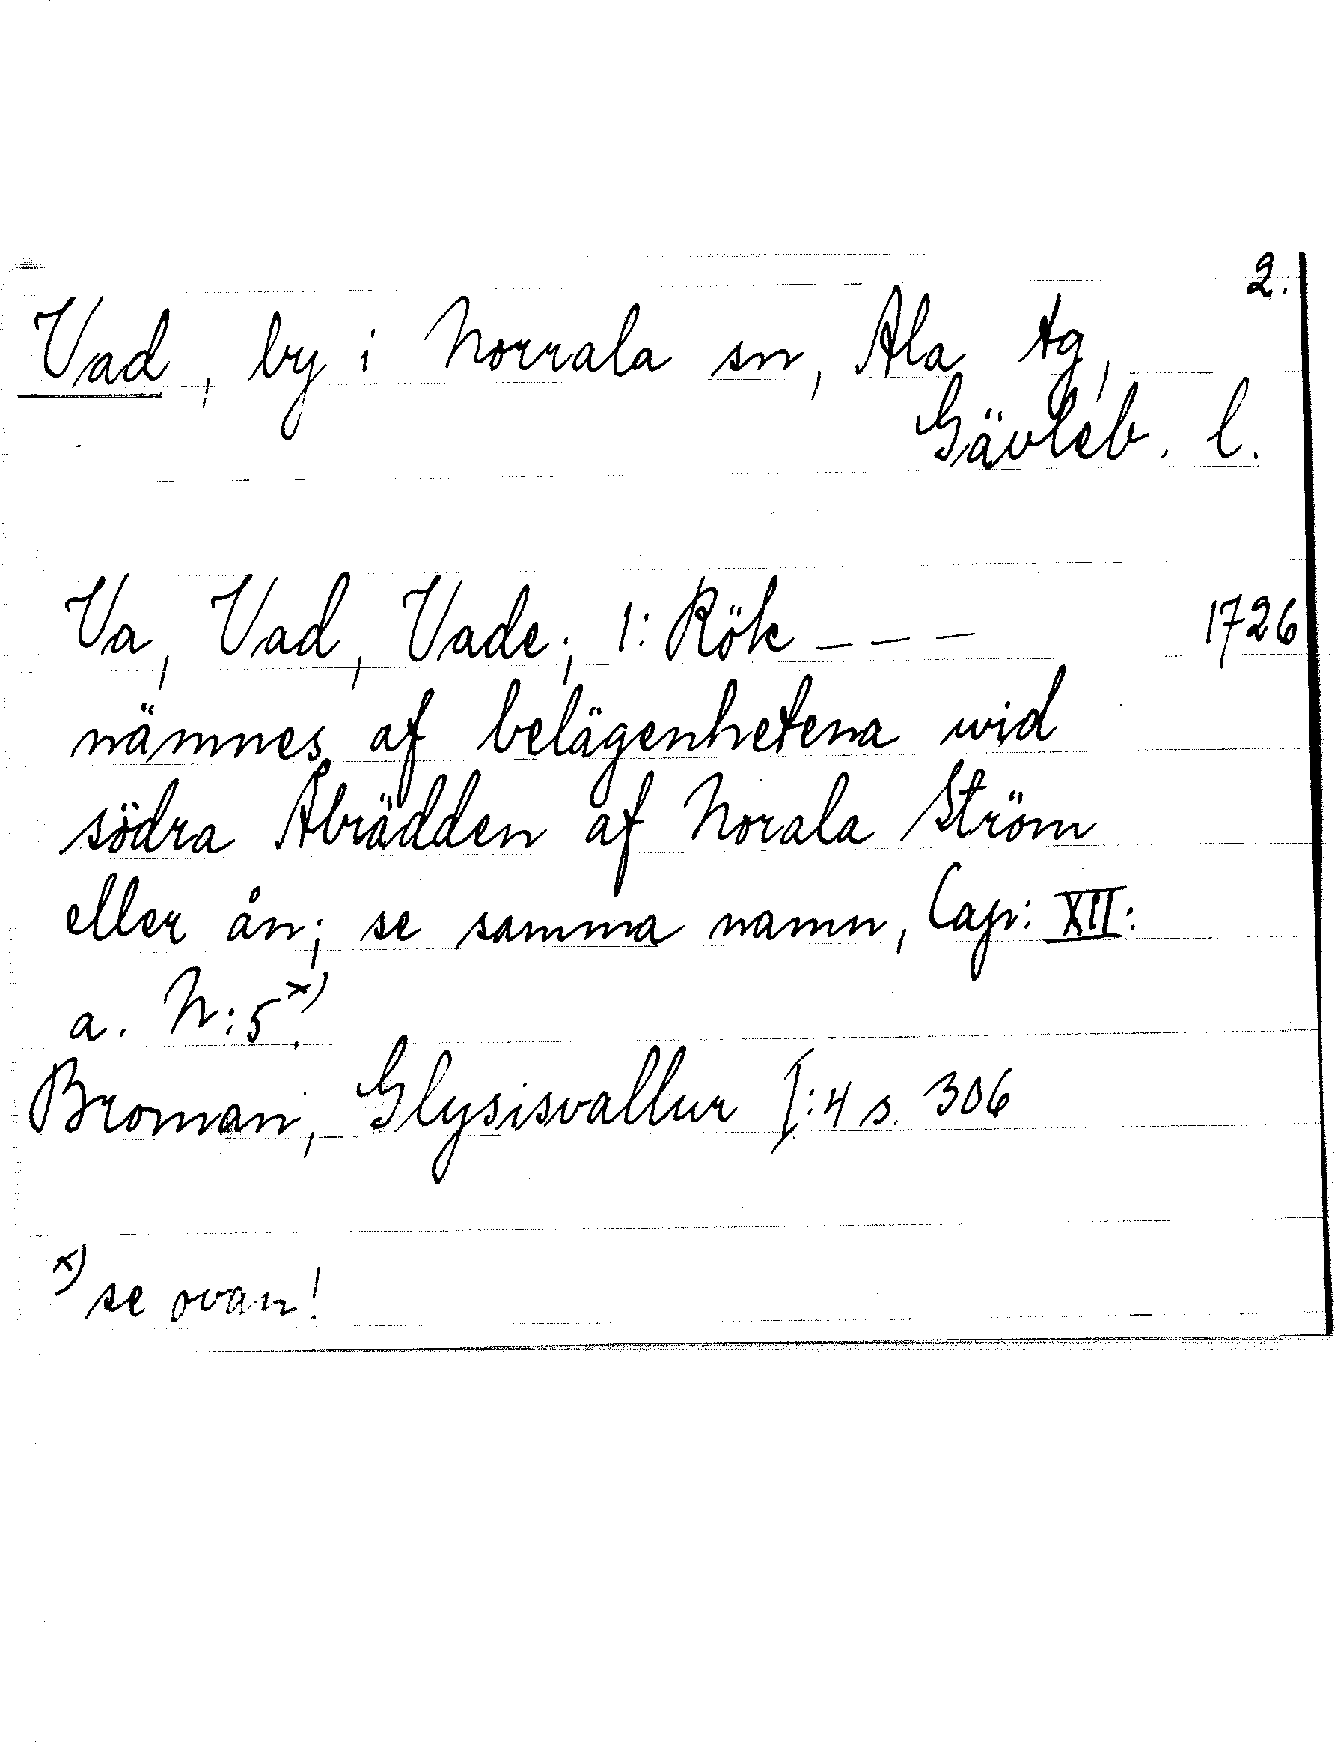 2.
Vad, by i Norrala sn, Ala tg,
Gävleb. l.
Va, Vad, Vade; 1: Rök – – – 1726
nämnes af belägenhetena wid
södra Åbrädden af Norala Ström
eller ån; se samma namn, Cap: XII:
a. N:5.x)
Broman, Glysisvallur I:4 s. 306
x) se ovan!